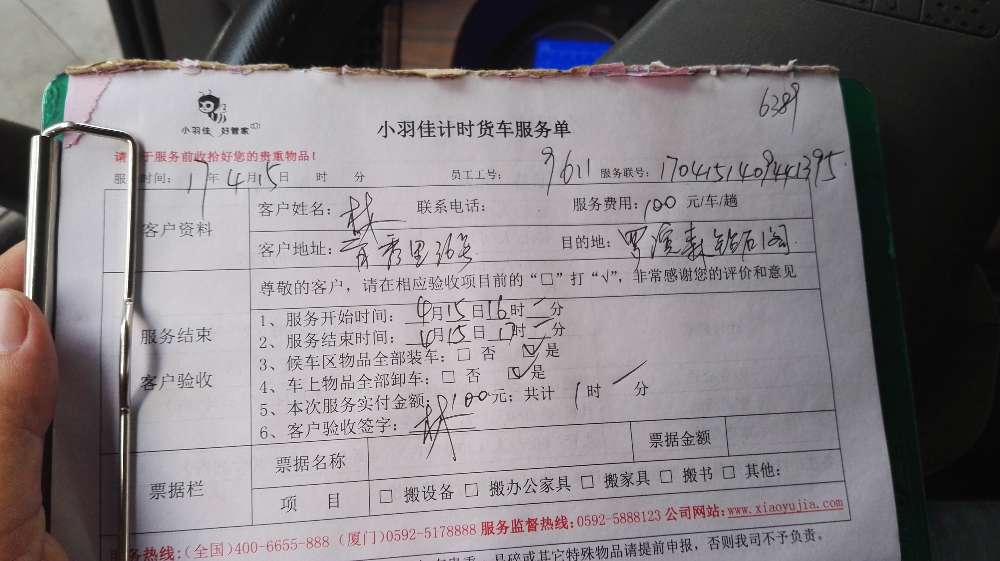 6289
小羽佳 好管家
小羽佳计时货车服务单
请 于服务前收拾好您的贵重物品！
服 时间：17年4月15日 时 分 员工工号：9611 服务联号：1704151409441395
客户资料 客户姓名：林 联系电话： 服务费用：100 元/车/趟
客户地址： 秀里 目的地： 钻石阁
尊敬的客户，请在相应验收项目前的“□”打“√”，非常感谢您的评价和意见
服务结束
客户验收
1、服务开始时间：4月15日16时 分
2、服务结束时间：4月15日17时 分
3、候车区物品全部装车：□ 否 ☑ 是
4、车上物品全部卸车：□ 否 ☑ 是
5、本次服务实付金额：100元；共计 1时 分
6、客户验收签字：林
票据栏 票据名称 票据金额
项 目 □ 搬设备 □ 搬办公家具 □ 搬家具 □ 搬书 □ 其他：
服务热线：(全国)400-6655-888 (厦门)0592-5178888 服务监督热线：0592-5888123 公司网站：www.xiaoyujia.com
易碎或其它特殊物品请提前申报，否则我司不予负责。